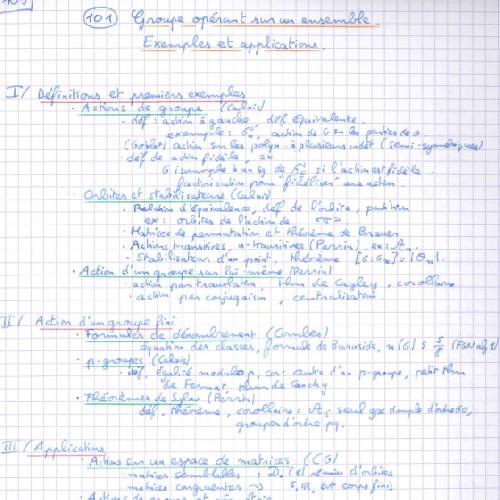 101 Groupe opérant sur un ensemble.
Exemples et applications.
I/ Définitions et premiers exemples
· Actions de groupe (Calais)
· déf : action à gauche, déf équivalente.
exemple : action de G sur les parties de G.
(Goblot) action sur les polyn. à plusieurs indét (semi-symétriques)
· déf de action fidèle, ex
G isomorphe à un sg de si l'action est fidèle.
factorisation pour fidéliser une action.
Orbites et stabilisateurs (Calais)
· Relation d'équivalence, déf de l'orbite, partition
ex : orbites de l'action de <σ>
· Matrices de permutation et théorème de Brauer.
· Actions transitives, n-transitives (Perrin), ex : An.
· Stabilisateur d'un point, théorème [G:Gx]=|Θx|.
· Action d'un groupe sur lui-même (Perrin)
· action par translation, thm de Cayley, corollaire
· action par conjugaison, centralisateur.
II/ Action d'un groupe fini
· Formules de dénombrement (Combes)
équation des classes, formule de Burnside, 5/8 (FGN alg 1)
· p-groupes (Calais)
déf, égalité modulo p, cor : centre d'un p-groupe, petit thm
de Fermat, thm de Cauchy
· Théorèmes de Sylow (Perrin)
déf, théorème, corollaire : A5 seul gpe simple d'ordre 60,
groupes d'ordre pq.
III/ Applications
· Actions sur un espace de matrices (CG)
· matrices semblables : d'orbites
· matrices congruentes corps finis